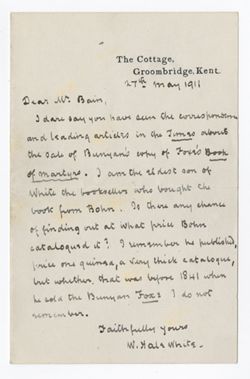 The Cottage,
Groombridge, Kent.
27th May 1911
Dear Mr. Bain,
I dare say you have seen the correspondence
and leading articles in the Times about
the sale of Bunyan's copy of Foxe's Book
of Martyrs. I am the eldest son of
White the bookseller who bought the
book from Bohn. Is there any chance
of finding out at what price Bohn
catalogued it? I remember he published,
price one guinea, a very thick catalogue,
but whether that was before 1841 when
he sold the Bunyan Foxe I do not
remember.
Faithfully yours
W. Hale White.